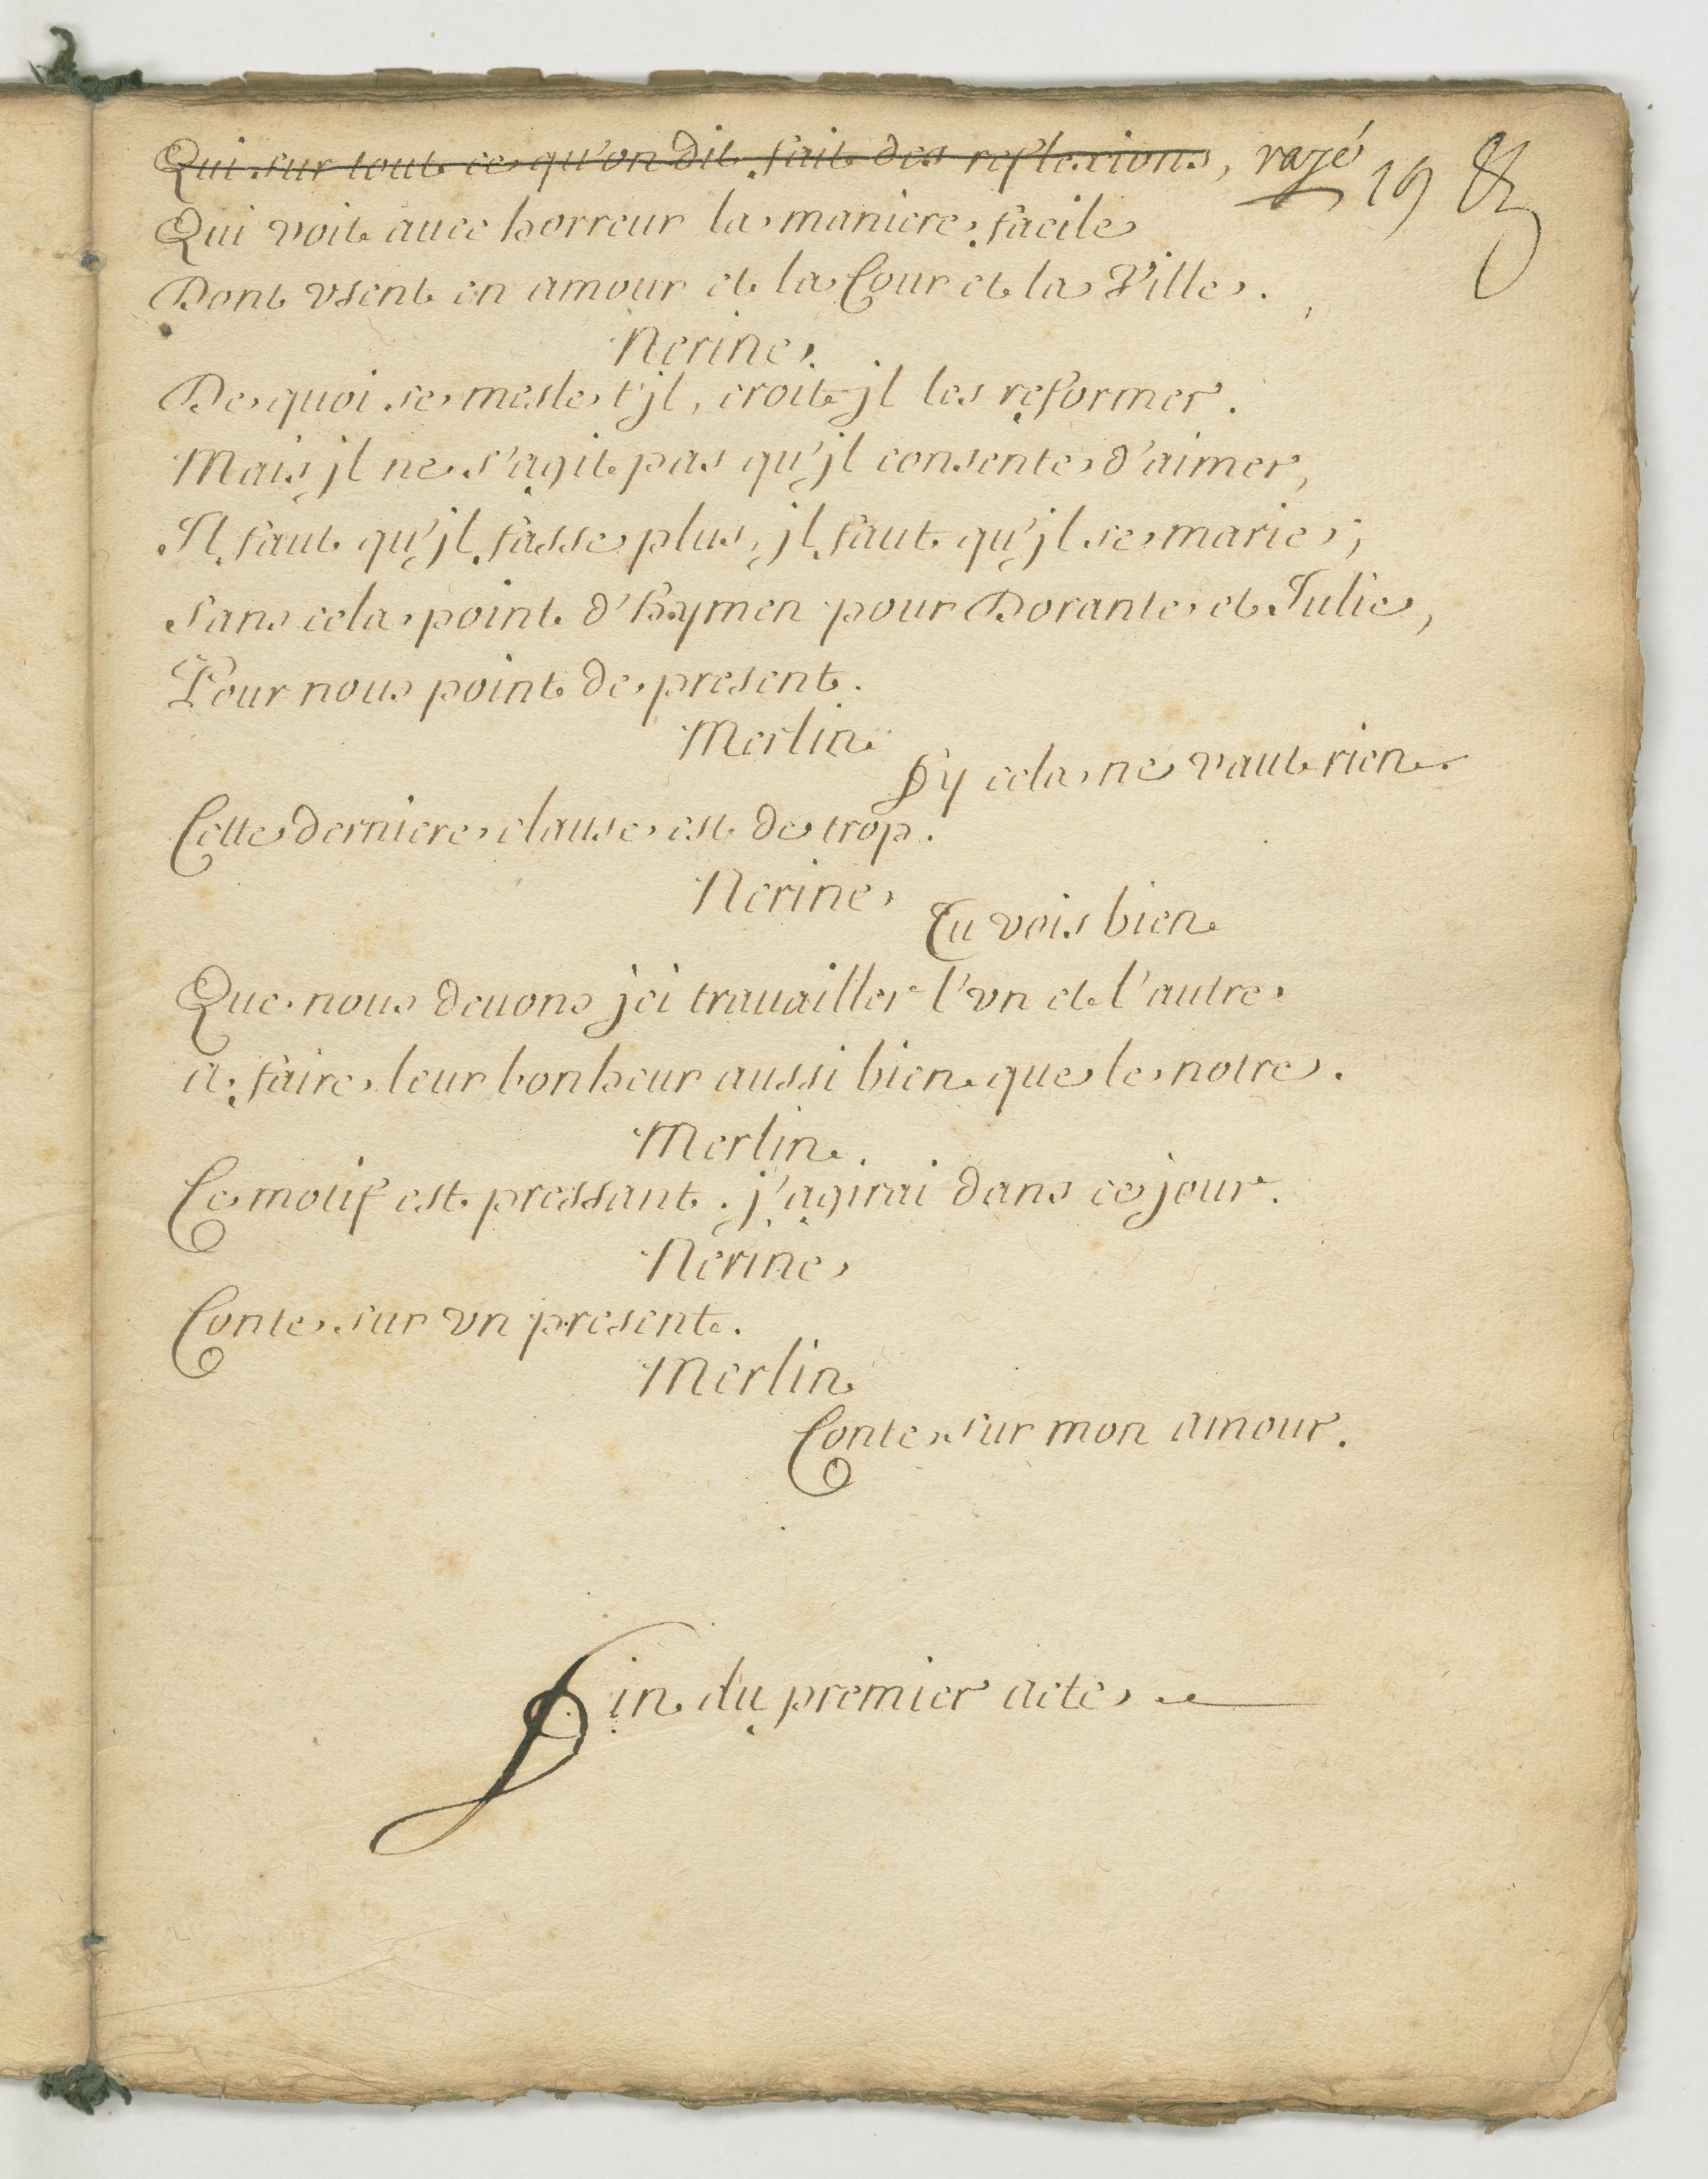 Qui sur tout ce qu'on dit fait des reflexions, rayé 19
Qui voit auec horreur la maniere facile
Dont vsent en amour et la Cour et la Ville.
Nerine
De quoi se mesle t'jl, croit jl les reformer.
Mais jl ne s'agit pas qu'jl consente d'aimer,
Il faut qu'jl fasse plus, jl faut qu'jl se marie;
Sans cela point d'hymen pour Dorante et Julie,
Pour nous point de present.
Merlin
Fy cela ne vaut rien.
Cette derniere clause est de trop.
Nerine
Tu vois bien
Que nous deuons jci trauailler l'vn et l'autre
a faire leur bonheur aussi bien que le notre.
Merlin.
Ce motif est pressant. j'agirai dans ce jour.
Nerine
Conte sur vn present.
Merlin
Conte sur mon amour.
Fin du premier acte